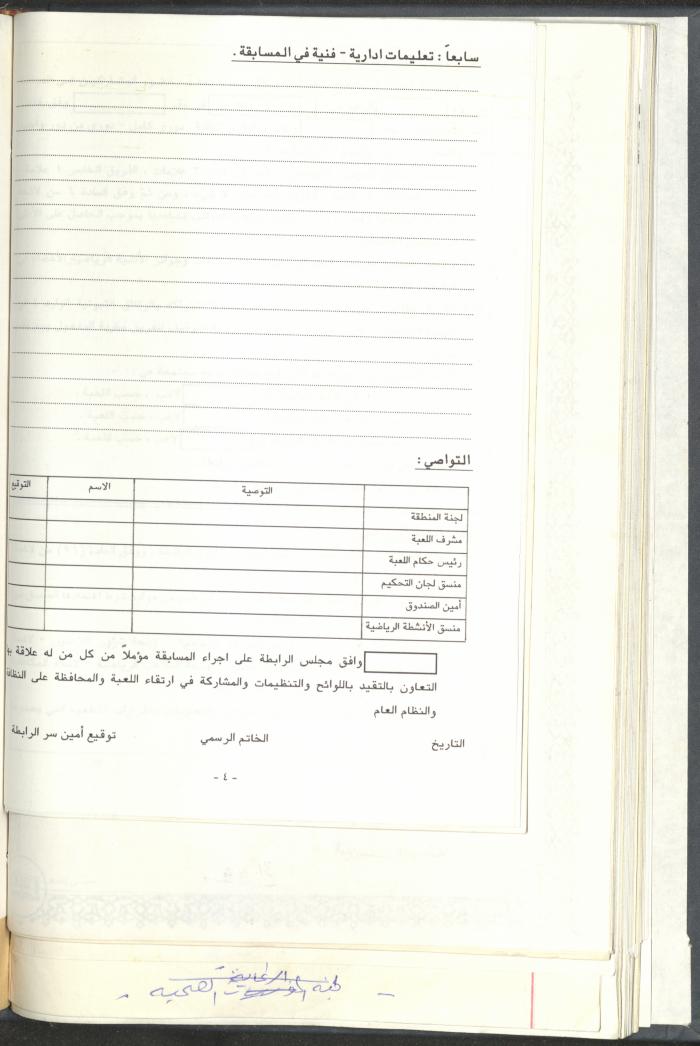 سابعاً : تعليمات ادارية - فنية في المسابقة .
التواصي :
التوصية الاسم التوقيع
لجنة المنطقة
مشرف اللعبة
رئيس حكام اللعبة
منسق لجان التحكيم
أمين الصندوق
منسق الأنشطة الرياضية
وافق مجلس الرابطة على اجراء المسابقة مؤملاً من كل من له علاقة بها
التعاون بالتقيد باللوائح والتنظيمات والمشاركة في ارتقاء اللعبة والمحافظة على النظافة
والنظام العام
التاريخ الخاتم الرسمي توقيع أمين سر الرابطة
- ٤ -
لجنة الصحية